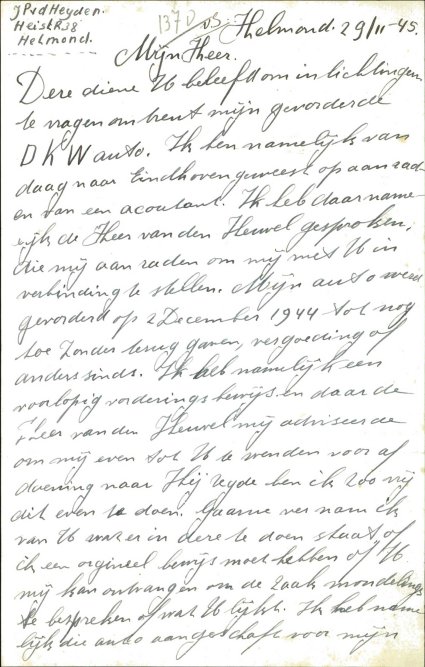 J P v d Heyden.
Heistr. 38
Helmond.
1370 05. Helmond. 29/11-45.
Mijn Heer.
Dere diene U beleefd om inlichtingen
te vragen omtrent mijn gevorderde
DKW auto. Ik ben namelijk van
daag naar Eindhoven geweest op aanrad-
en van een acoutant. Ik heb daar name-
lijk de Heer van den Heuvel gesproken,
die mij aan raden om mij met U in
verbinding te stellen. Mijn auto werd
gevorderd op 2 December 1944 tot nog
toe zonder terug gaven, vergoeding of
anders sinds. Ik heb namelijk een
voorlopig vorderings bewijs en daar de
Heer van den Heuvel mij adviseerde
om mij even tot U te wenden voor af
doening naar Hij zegde ben ik zoo vrij
dit even te doen. Gaarne ver nam ik
van U wat er in dere te doen staat of
ik een orgineel bewijs moet hebben of U
mij kan ontvangen om de zaak mondelings
te bespreken of wat U lijkt. Ik heb name
lijk die auto aangeschaft voor mijn